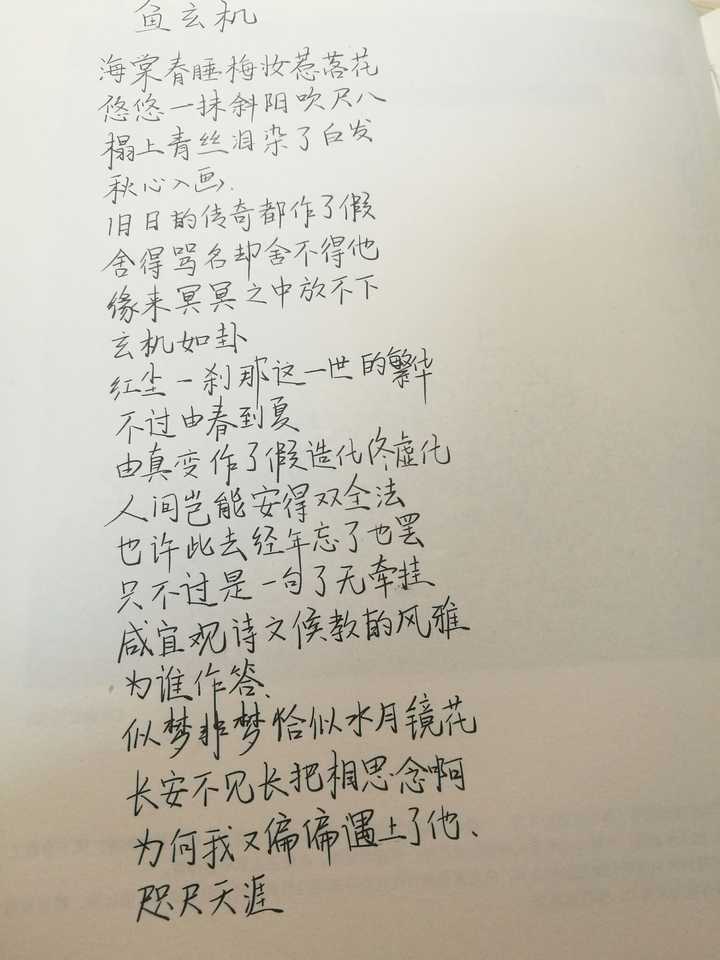 鱼玄机
海棠春睡梅妆惹落花
悠悠一抹斜阳吹尺八
榻上青丝泪染了白发
秋心入画、
旧日的传奇都作了假
舍得骂名却舍不得他
缘来冥冥之中放不下
玄机如卦
红尘一刹那这一世的繁华
不过由春到夏
由真变作了假造化终虚化
人间岂能安得双全法
也许此去经年忘了也罢
只不过是一句了无牵挂
咸宜观诗文候教的风雅
为谁作答、
似梦非梦恰似水月镜花
长安不见长把相思念啊
为何我又偏偏遇上了他、
咫尺天涯